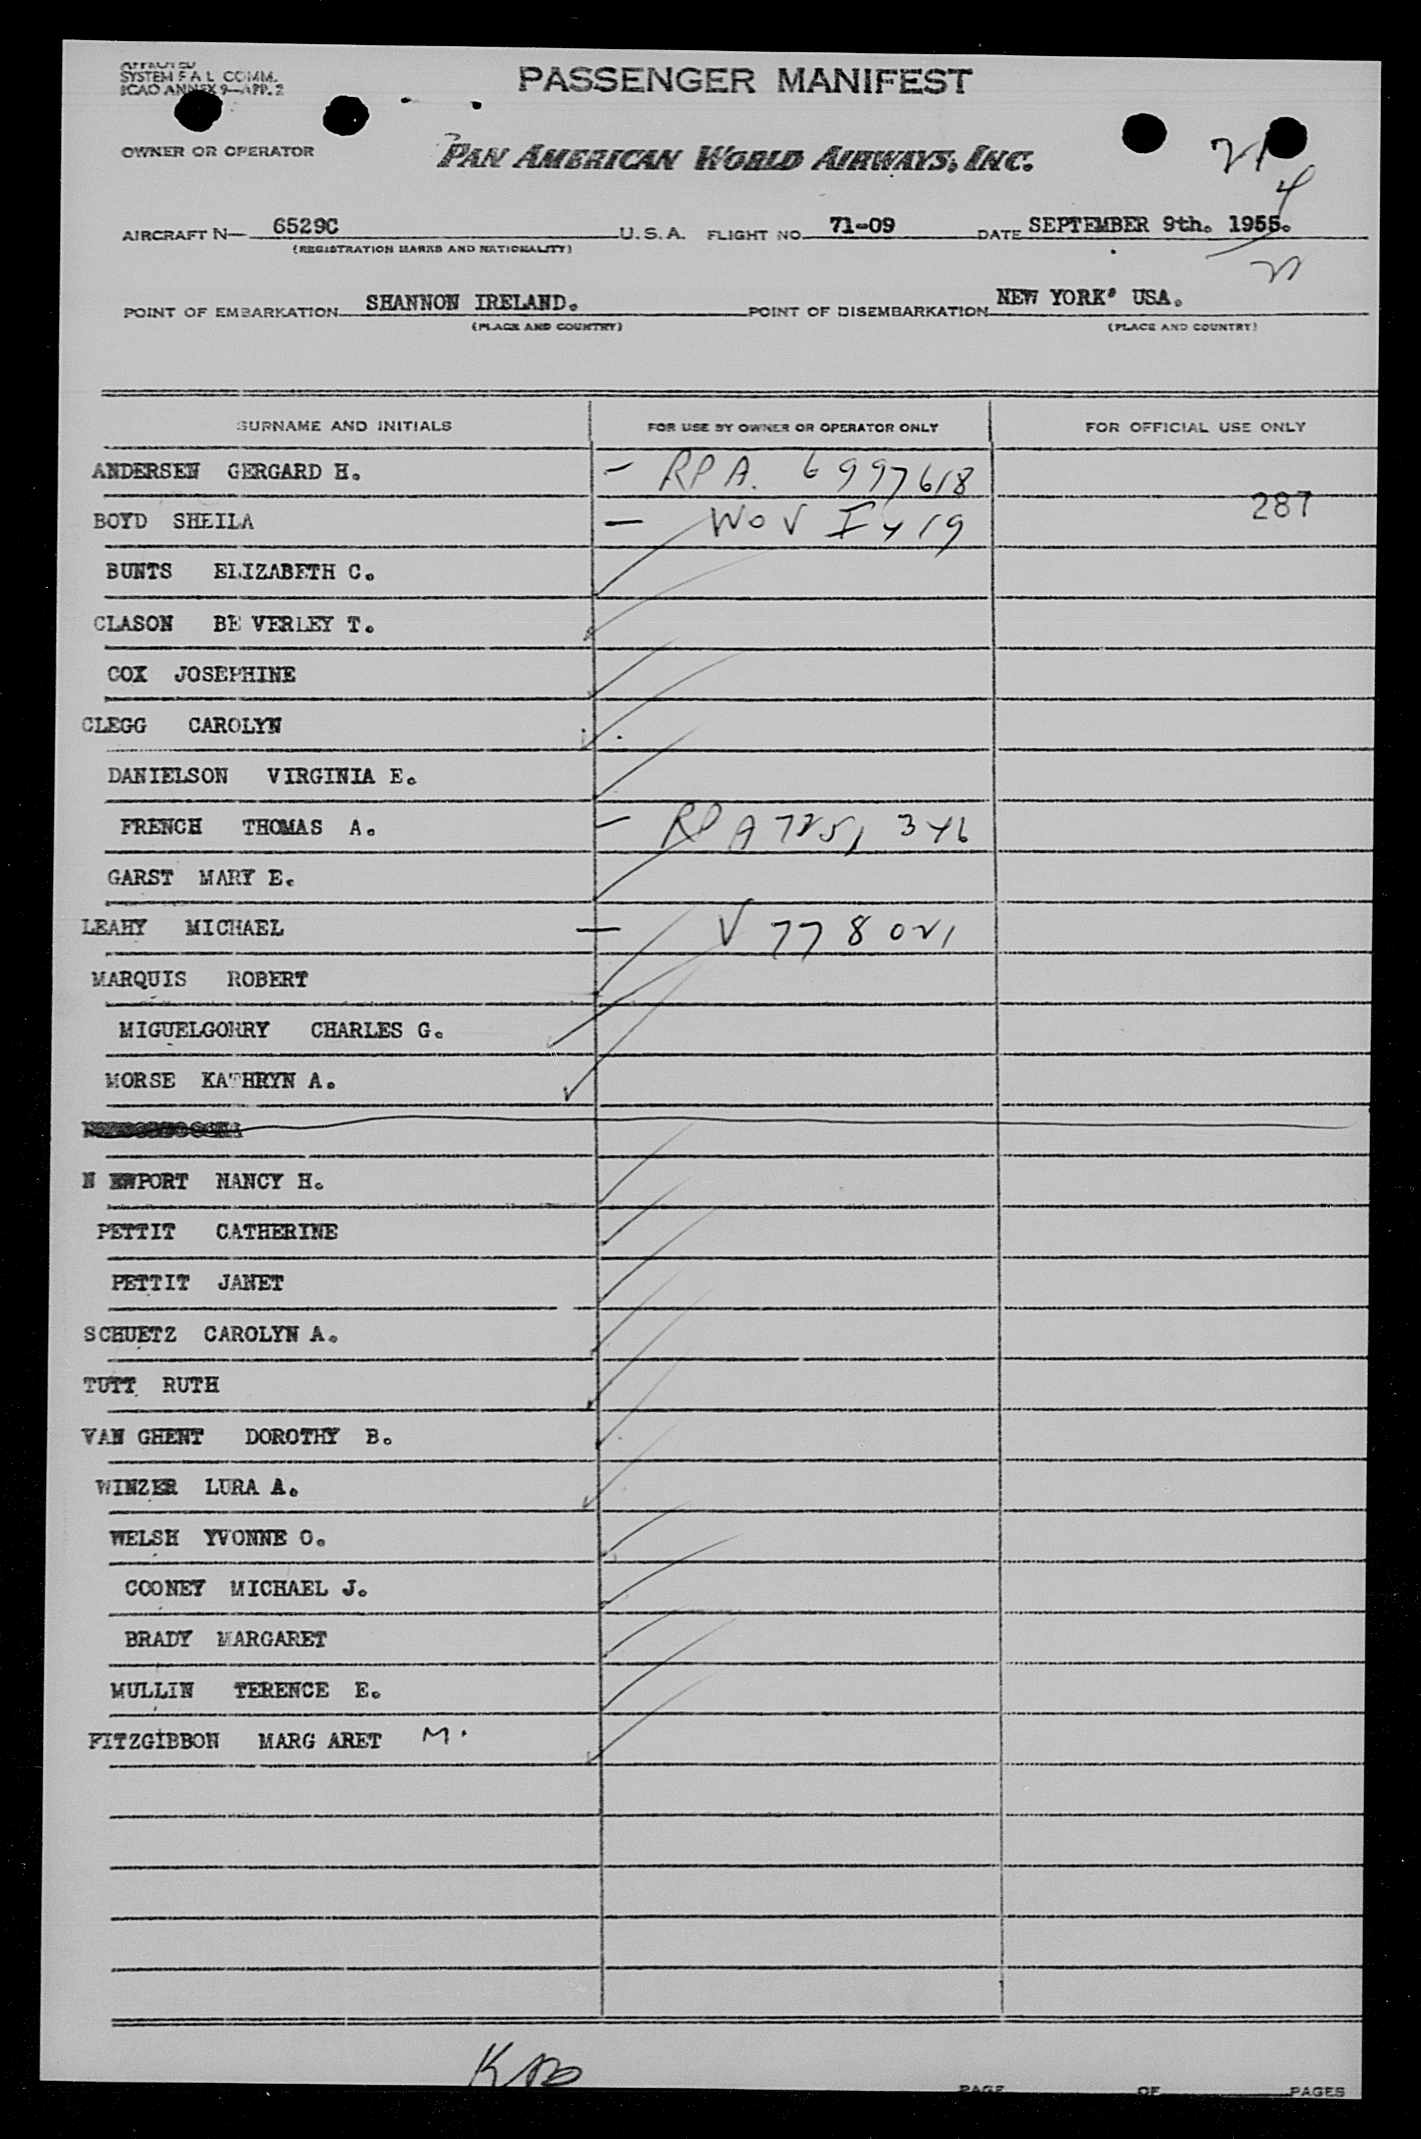 APPROVED
SYSTEM F A L COMM.
ICAO ANNEX 9—APP. 2
PASSENGER MANIFEST
OWNER OR OPERATOR
PAN AMERICAN WORLD AIRWAYS, INC.
21
4
AIRCRAFT N— 6529C U.S.A. FLIGHT NO. 71-09 DATE SEPTEMBER 9th. 1955.
(REGISTRATION MARKS AND NATIONALITY)
POINT OF EMBARKATION SHANNON IRELAND. POINT OF DISEMBARKATION NEW YORK' USA.
(PLACE AND COUNTRY) (PLACE AND COUNTRY)
SURNAME AND INITIALS FOR USE BY OWNER OR OPERATOR ONLY FOR OFFICIAL USE ONLY
ANDERSEN GERGARD H. — RPA. 6997618
287
BOYD SHEILA — WOV I419
BUNTS ELIZABETH C.
CLASON BE VERLEY T.
COX JOSEPHINE
CLEGG CAROLYN
DANIELSON VIRGINIA E.
FRENCH THOMAS A. — RPA 7251346
GARST MARY E.
LEAHY MICHAEL — V 778021
MARQUIS ROBERT
MIGUELGORRY CHARLES G.
MORSE KATHRYN A.
N EWPORT NANCY H.
PETTIT CATHERINE
PETTIT JANET
SCHUETZ CAROLYN A.
TUTT RUTH
VAN GHENT DOROTHY B.
WINZER LURA A.
WELSH YVONNE O.
COONEY MICHAEL J.
BRADY MARGARET
MULLIN TERENCE E.
FITZGIBBON MARG ARET M.
PAGE OF PAGES